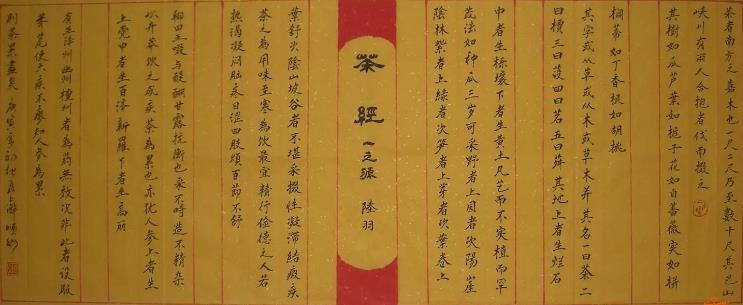 茶者南方之嘉木也一尺二尺乃至数十尺其巴山
峡川有两人合抱者伐而掇之
其树如瓜芦叶如栀子花如白蔷薇实如栟
桐蒂如丁香根如胡桃
其字或从草或从木或草木并其名一曰茶二
曰槚三曰蔎四曰茗五曰荈其地上者生烂石
中者生栎壤下者生黄土凡艺而不实植而罕
茂法如种瓜三岁可采野者上园者次阳崖
阴林紫者上绿者次笋者上芽者次叶卷上
茶經
一之源 陸羽
葉舒次阴山坡谷者不堪采掇性凝滞结瘕疾
茶之為用味至寒為饮最宜精行俭德之人若
热渴凝闷脑疼目涩四肢烦百節不舒
聊四五啜与醍醐甘露抗衡也采不時造不精杂
以卉莽饮之成疾茶為累也亦犹人参上者生
上党中者生百济新罗下者生高丽
有生泽州幽州檀州者為药無效况非此者设服
荠苨使六疾不瘳知人参為累
则茶累盡矣